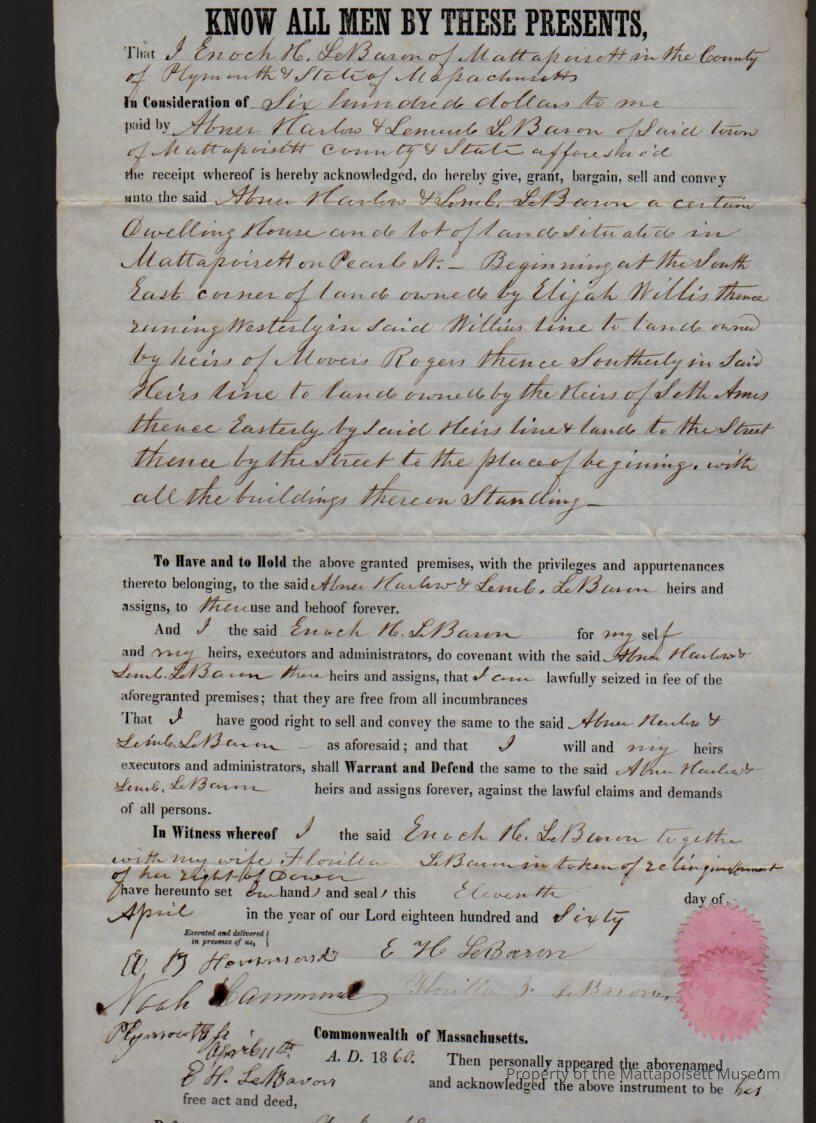 KNOW ALL MEN BY THESE PRESENTS,
That I Enoch H. LeBaron of Mattapoisett in the County
of Plymouth & State of Massachusetts
In Consideration of Six hundred dollars to me
paid by Abner Harlow & Lemuel LeBaron of said town
of Mattapoisett county & State afforesaid
the receipt whereof is hereby acknowledged, do hereby give, grant, bargain, sell and convey
unto the said Abner Harlow & Leml. LeBaron a certain
Dwelling House and lot of land situated in
Mattapoisett on Pearl St. – Beginning at the South
East corner of land owned by Elijah Willis thence
runing Westerly in said Williss line to land owned
by heirs of Rogers thence Southerly in said
Heirs line to land owned by the Heirs of Seth Ames
thence Easterly by said Heirs line & land to the Street
thence by the Street to the place of begining. with
all the buildings thereon Standing –
To Have and to Hold the above granted premises, with the privileges and appurtenances
thereto belonging, to the said Abner Harlow & Leml. LeBaron heirs and
assigns, to there use and behoof forever.
And I the said Enoch H. LeBaron for my self
and my heirs, executors and administrators, do covenant with the said Abner Harlow &
Leml. LeBaron there heirs and assigns, that I am lawfully seized in fee of the
aforegranted premises; that they are free from all incumbrances
That I have good right to sell and convey the same to the said Abner Harlow &
Leml. LeBaron – as aforesaid; and that I will and my heirs
executors and administrators, shall Warrant and Defend the same to the said Abner Harlow &
Leml. LeBaron heirs and assigns forever, against the lawful claims and demands
of all persons.
In Witness whereof I the said Enoch H. LeBaron together
with my wife Florilla LeBaron in token of
of her right of Dower
have hereunto set our hands and seals this Eleventh day of
April in the year of our Lord eighteen hundred and Sixty
Executed and delivered
in presence of us,
E H LeBaron
Noah Hammond
Florilla LeBaron
Plymouth ss
April 11th
Commonwealth of Massachusetts.
A. D. 1860. Then personally appeared the abovenamed
E H. LeBaron and acknowledged the above instrument to be his
free act and deed,
Property of the Mattapoisett Museum